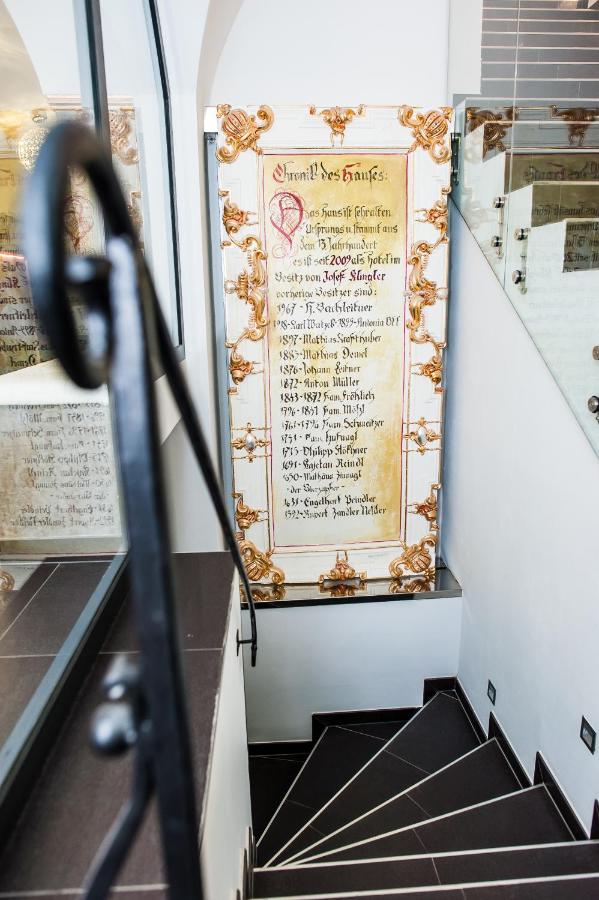 Chronik des Hauses:
Das Haus ist sehr alten
Ursprungs u. stammt aus
dem 13 Jahrhundert
es ist seit 2009 als Hotel im
Besitz von Josef Klingler
vorherige Besitzer sind:
1967 - H. Bachleitner
Karl Watzek - 1899 - Antonia Ott
1897 - Mathias Krafthuber
1885 - Mathias Demel
1876 - Johann Leitner
1872 - Anton Müller
1843 - 1872 Fam. Fröhlich
1796 - 1851 Fam. Mößl
1761 - 1796 Fam. Schweitzer
1751 - Paul Hufnagl
1715 - Philipp Stöckner
1691 - Kajetan Reindl
1650 - Mathäus Hufnagl
- der Bierzapfer -
1631 - Engelhart Prindler
1592 - Rupert Zandler